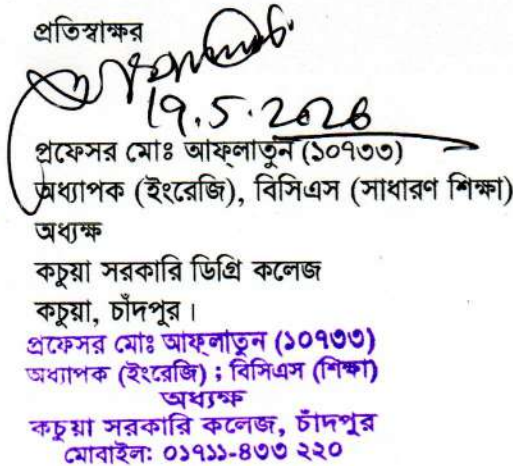 প্রতিস্বাক্ষর
19.5.2026
প্রফেসর মোঃ আফ্লাতুন (১০৭৩৩)
অধ্যাপক (ইংরেজি), বিসিএস (সাধারণ শিক্ষা)
অধ্যক্ষ
কচুয়া সরকারি ডিগ্রি কলেজ
কচুয়া, চাঁদপুর।
প্রফেসর মোঃ আফ্লাতুন (১০৭৩৩)
অধ্যাপক (ইংরেজি) ; বিসিএস (শিক্ষা)
অধ্যক্ষ
কচুয়া সরকারি কলেজ, চাঁদপুর
মোবাইল: ০১৭১১-৪৩৩ ২২০